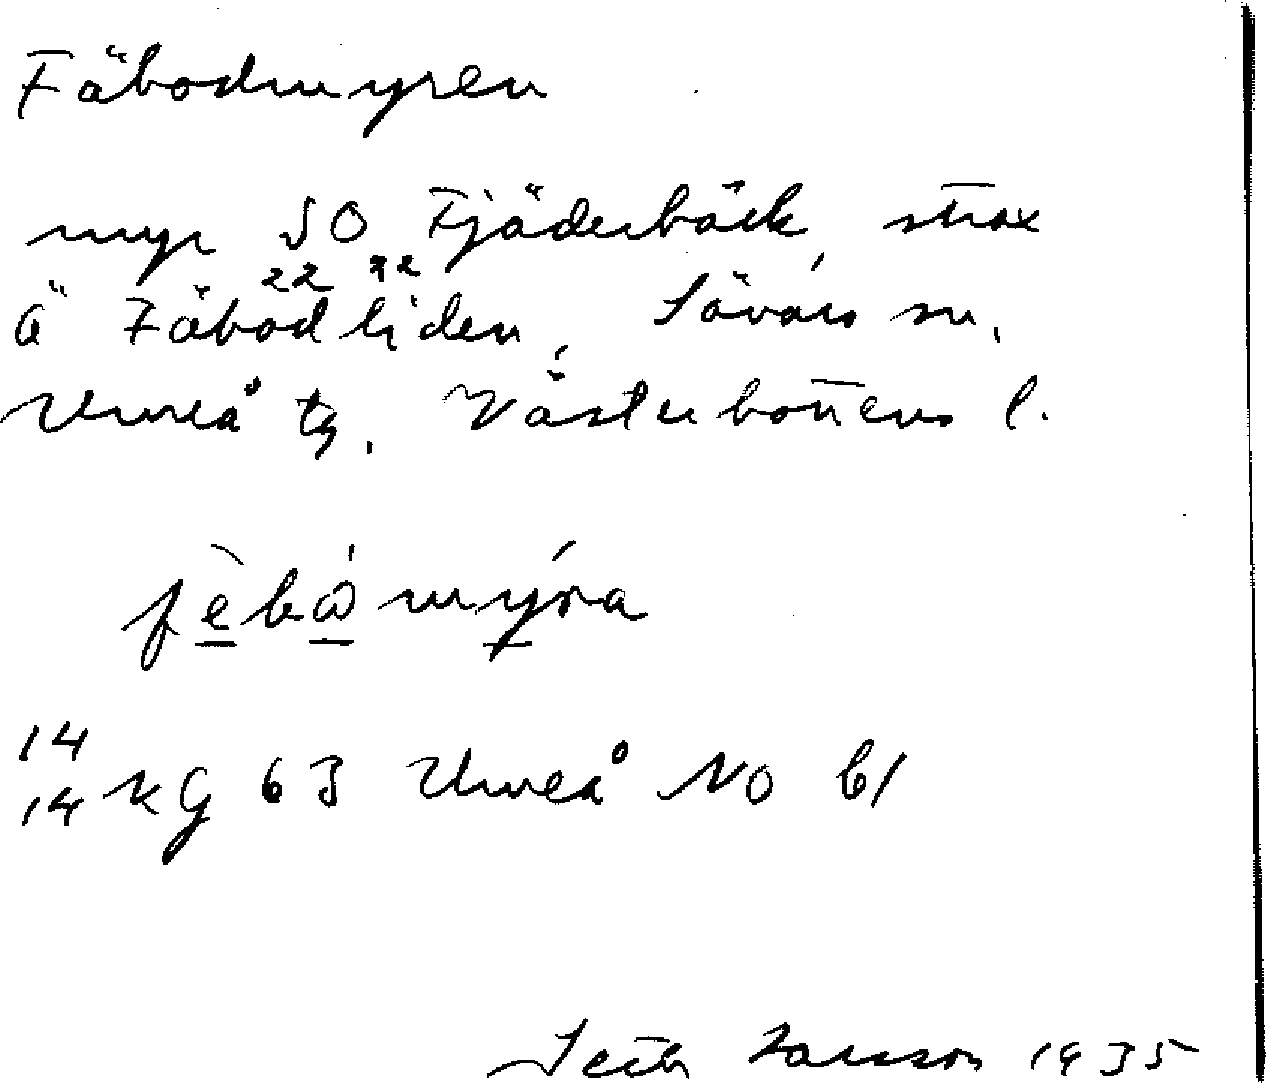 Fäbodmyren
myr SO Fjäderbäck, strax
Ö Fäbodliden, Sävars sn,
22 22
Umeå tg. Västerbottens l.
fèbômýra
14
14 KG 63 Umeå NO b1
Seth Larsson 1935